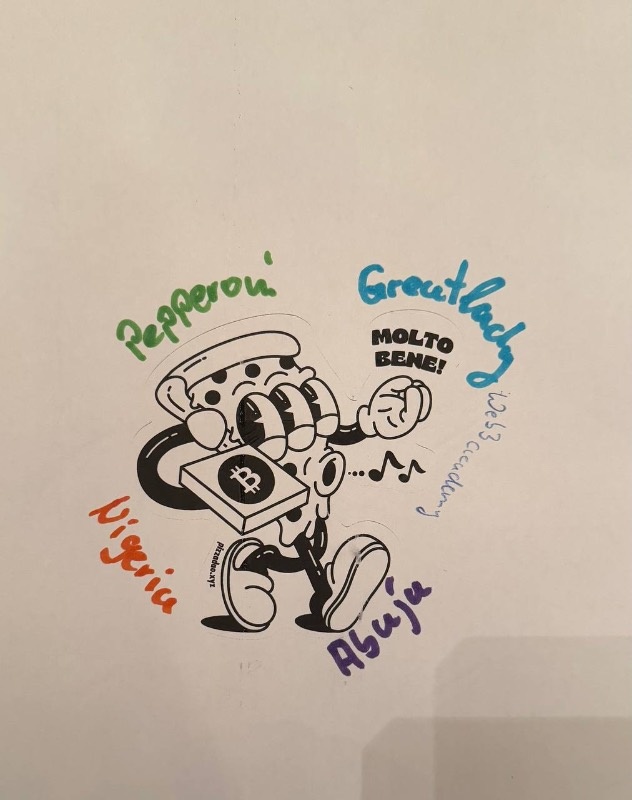 Pepperoni
Greatlady
MOLTO
BENE!
Web3 academy
₿
Nigeria
pizzadao.xyz
Abuja